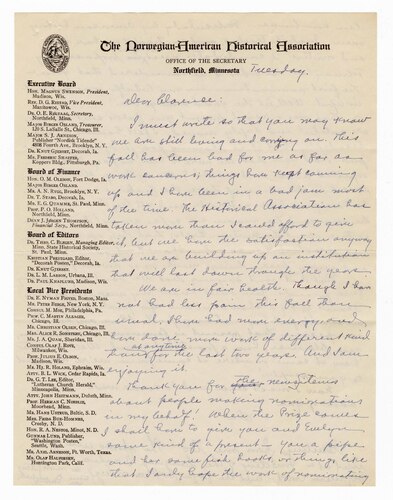 The Norwegian-American Historical Association
OFFICE OF THE SECRETARY
Northfield, Minnesota
Tuesday.
Executive Board
Hon. Magnus Swenson, President,
Madison, Wis.
Manitowoc, Wis.
Dr. O. E. Rolvaag, Secretary,
Northfield, Minn.
Major Birger Osland, Treasurer,
120 S. LaSalle St., Chicago, Ill.
Publisher "Nordisk Tidende"
4808 Fourth Ave., Brooklyn, N. Y.
Dr. Knut Gjerset, Decorah, Ia.
Koppers Bldg., Pittsburgh, Pa.
Board of Finance
Hon. O. M. Oleson, Fort Dodge, Ia.
Major Birger Osland
Mr. A. N. Rygg, Brooklyn, N. Y.
Dr. T. Stabo, Decorah, Ia.
St. Paul, Minn.
Prof. P. O. Holland,
Northfield, Minn.
Dean J. Jørgen Thompson,
Financial Secy., Northfield, Minn.
Board of Editors
Dr. Theo. C. Blegen, Managing Editor,
Minn. State Historical Society,
St. Paul, Minn.
Kristian Prestgard, Editor,
"Decorah Posten," Decorah, Ia.
Dr. Knut Gjerset
Dr. L. M. Larson, Urbana, Ill.
Dr. Paul Knaplund, Madison, Wis.
Local Vice Presidents
Dr. E. Nyman Figved, Boston, Mass.
Mr. Peter Berge, New York, N. Y.
Chicago, Ill.
Mr. Christian Olsen, Chicago, Ill.
Mr. J. A. Quam, Sheridan, Ill.
Milwaukee, Wis.
Prof. Julius E. Olson,
Madison, Wis.
Mr. Hj. R. Holand, Ephraim, Wis.
Atty. R. L. Wick, Cedar Rapids, Ia.
Dr. G. T. Lee, Editor,
"Lutheran Church Herald,"
Minneapolis, Minn.
Atty. John Heitmann, Duluth, Minn.
Prof. Herman C. Nordlie,
Moorhead, Minn.
Mr. Hans Ustrud, Baltic, S. D.
Crosby, N. D.
Hon. R. A. Nestos, Minot, N. D.
Gunnar Lund, Publisher,
"Washington Posten,"
Seattle, Wash.
Mr. Axel Arneson, Ft. Worth, Texas.
Mr. Olaf Halvorsen,
Huntington Park, Calif.
Dear Clarence:
I must write so that you may know
we are still living and carrying on. This
fall has been bad for me as far as
work concerns; things have kept coming
up and I have been in a bad jam most
of the time. The Historical Association has
taken more than I could afford to give
it, but we have the satisfaction anyway
that we are building up an institution
that will last down through the years.
We are in fair health. Though I have
not had less pain this fall than
usual, I have had more energy, and
have done more work of different kind
than for the last two years. And I am
enjoying it.
Thank you for news items
about people making nominations
in my behalf! When the Prize comes
I shall have to give you and Evelyn
some kind of a present — you a pipe
and her some fish hooks, or things like
that. I only hope the work of nominating